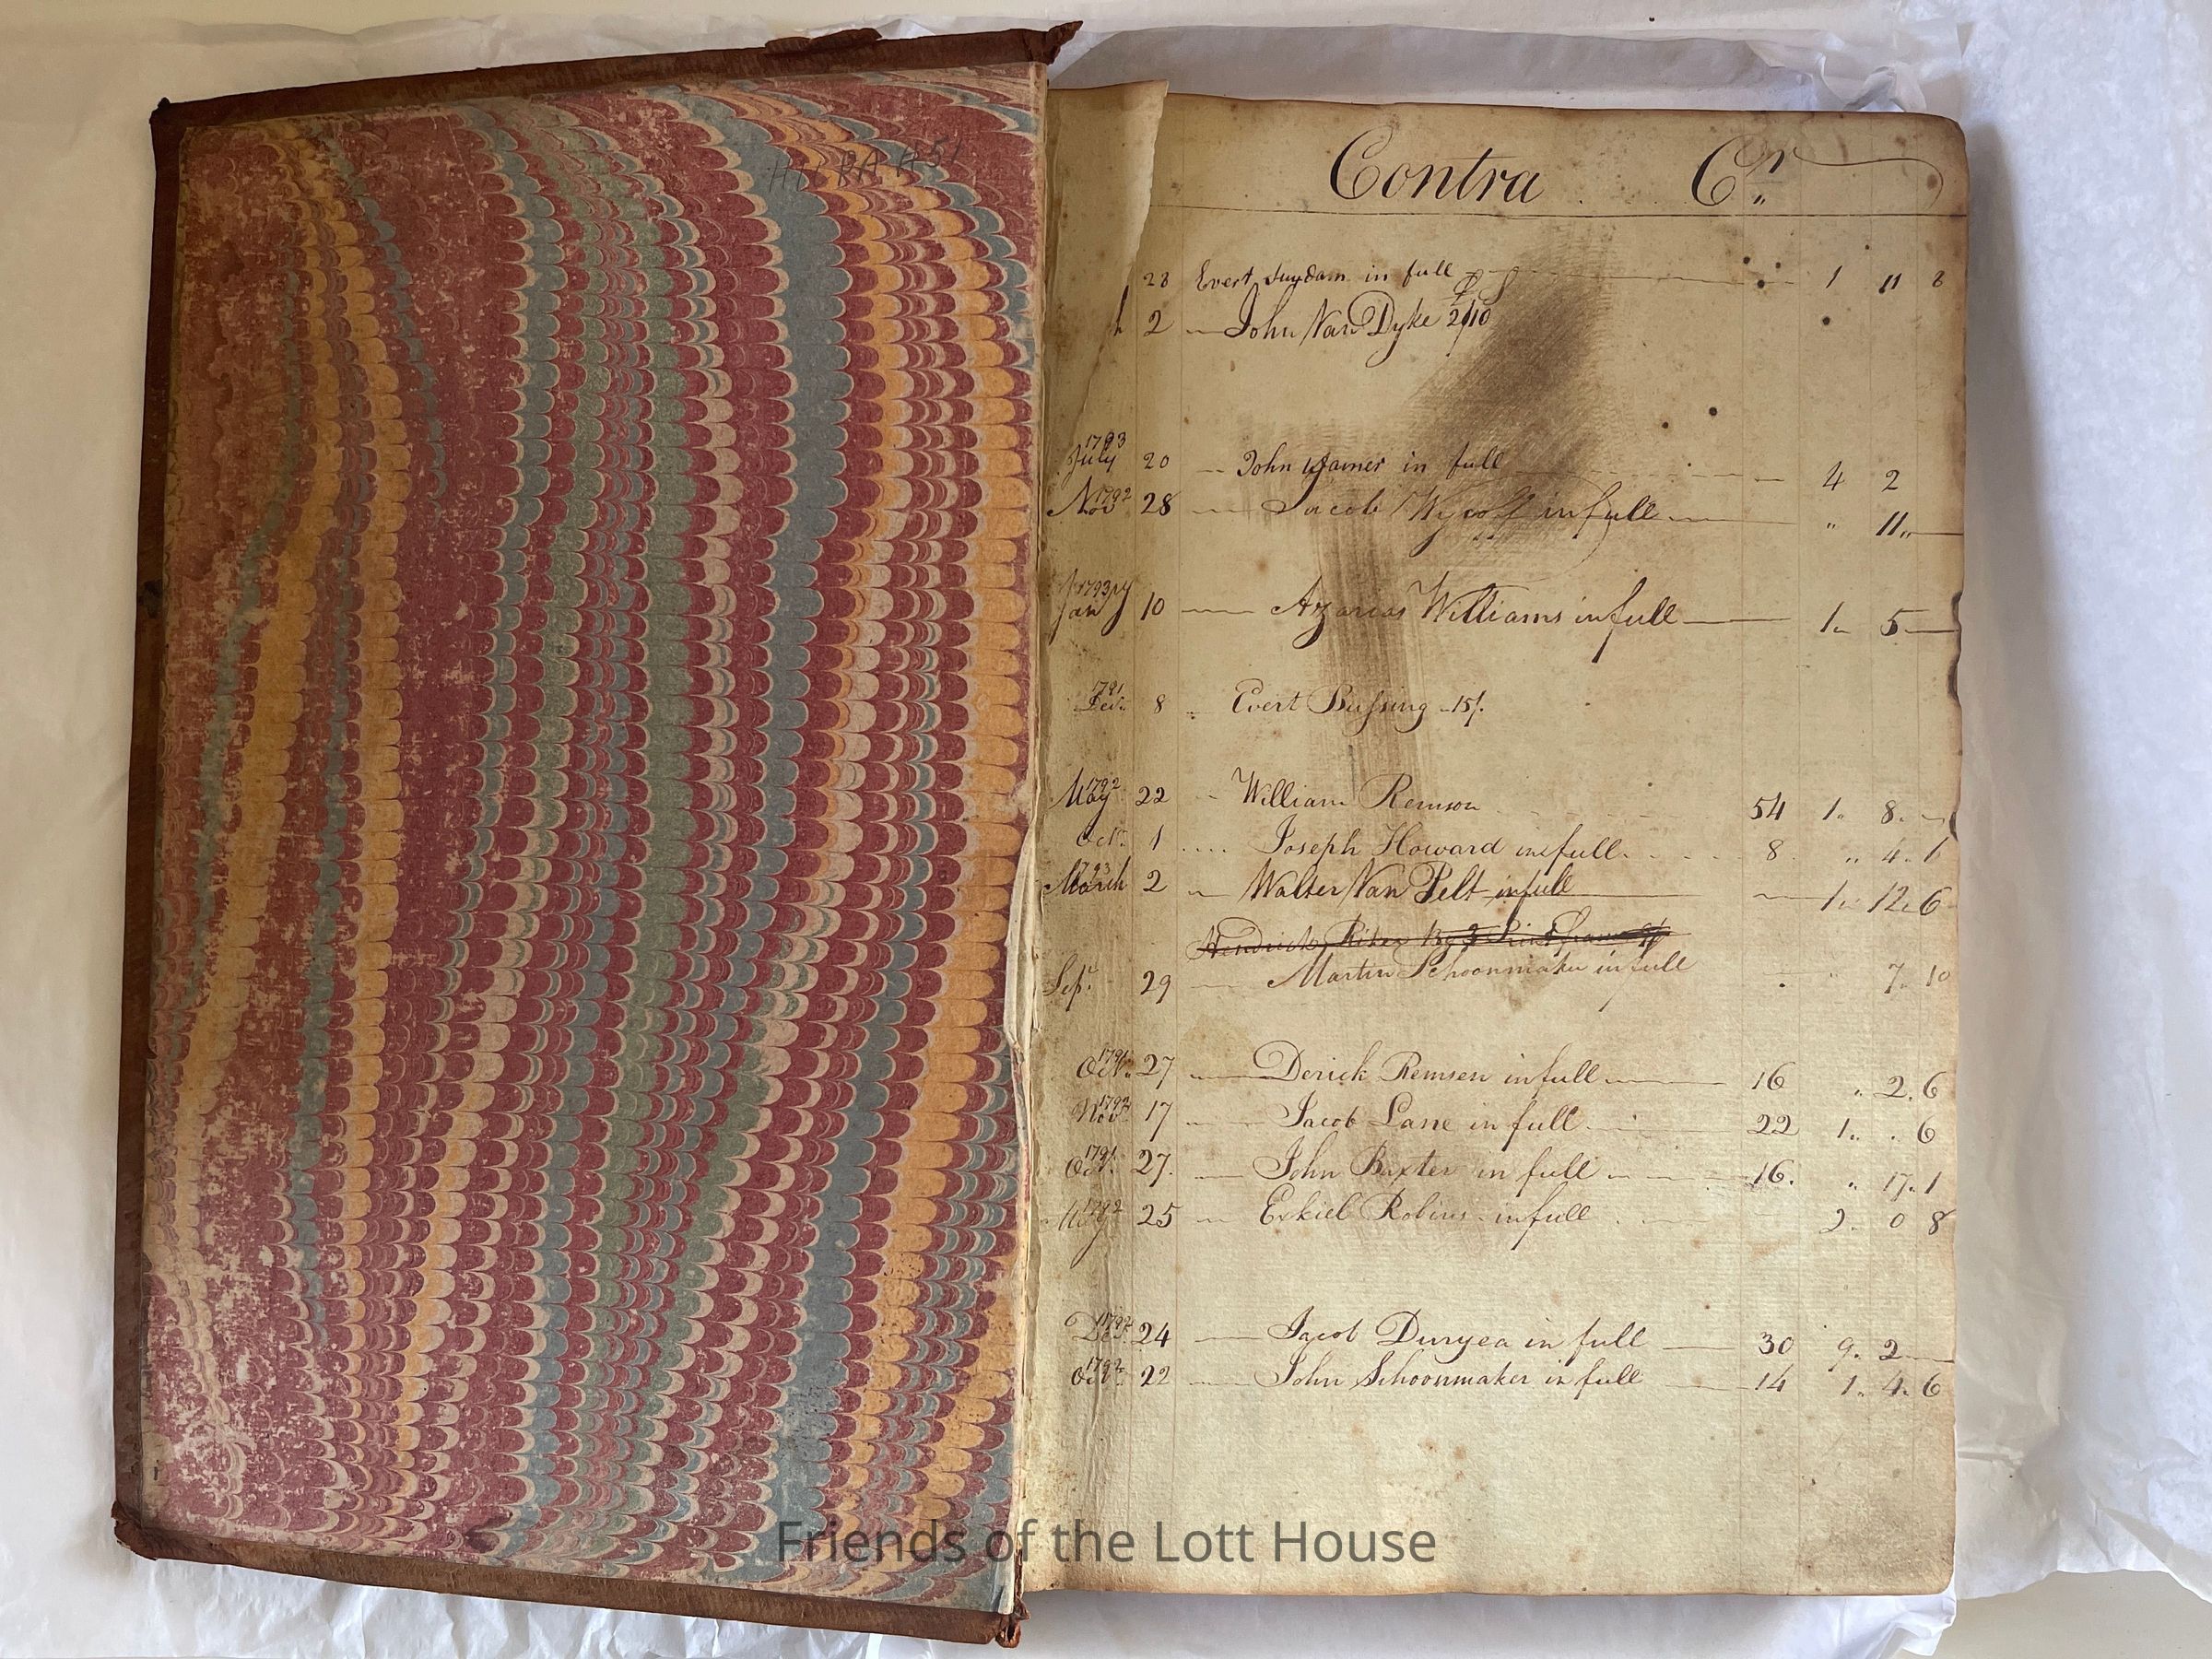 Contra Cr.
28 Evert Suydam in full 1 11 8
2 John Van Dyke 2/10
1793
July 20 John in full 4 2
1792
Nov 28 Jacob Wycoff in full " 11 "
1793
Jany 10 Azarias Williams in full 1 " 5
1791
Dec. 8 Evert Bussing 15/.
1792
May 22 William Remson 54 1. 8.
Octr. 1 Joseph Howard in full 8 " 4. 6
1793
March 2 Walter Van Pelt in full 1 " 12. 6
Hendrick
Sepr. 29 Martin Schoonmaker in full 7. 10
1791
Oct. 27 Derick Remsen in full 16 " 2. 6
1792
Nov 17 Jacob Lane in full 22 1 " . 6
1791
Oct. 27. John Baxter in full 16. " 17. 1
1792
May 25 Ezkiel Robins in full 2. 0 8
1792
Dec. 24 Jacob Duryea in full 30 9. 2
1792
Oct. 22 John Schoonmaker in full 14 1. 4. 6
Friends of the Lott House